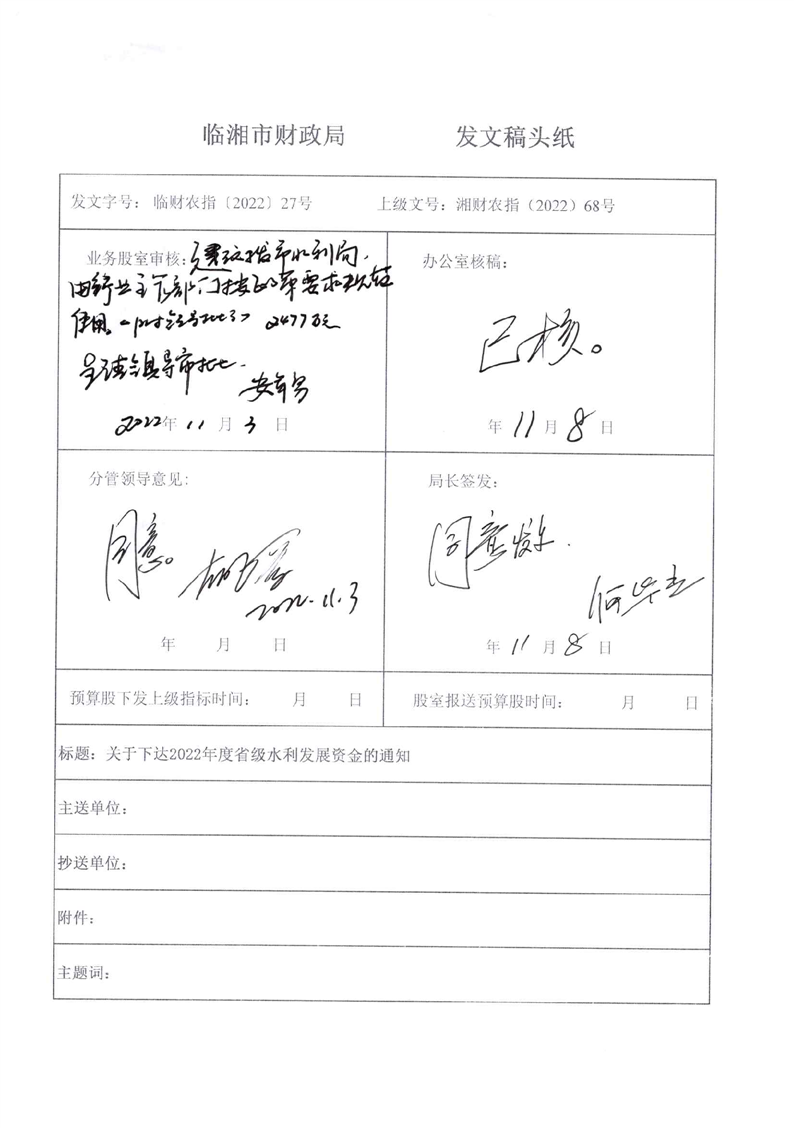 临湘市财政局 发文稿头纸
发文字号： 临财农指〔2022〕27号 上级文号：湘财农指（2022）68号
业务股室审核：建议拨市水利局，
由行业主管部门按政策要求
使用。 2477万元
呈请领导审批.
2022年 11 月 3 日
办公室核稿：
已核。
年 11 月 8 日
分管领导意见：
同意。
2022.11.3
年 月 日
局长签发：
同意发文.
年 11 月 8 日
预算股下发上级指标时间： 月 日 股室报送预算股时间： 月 日
标题：关于下达2022年度省级水利发展资金的通知
主送单位：
抄送单位：
附件：
主题词：